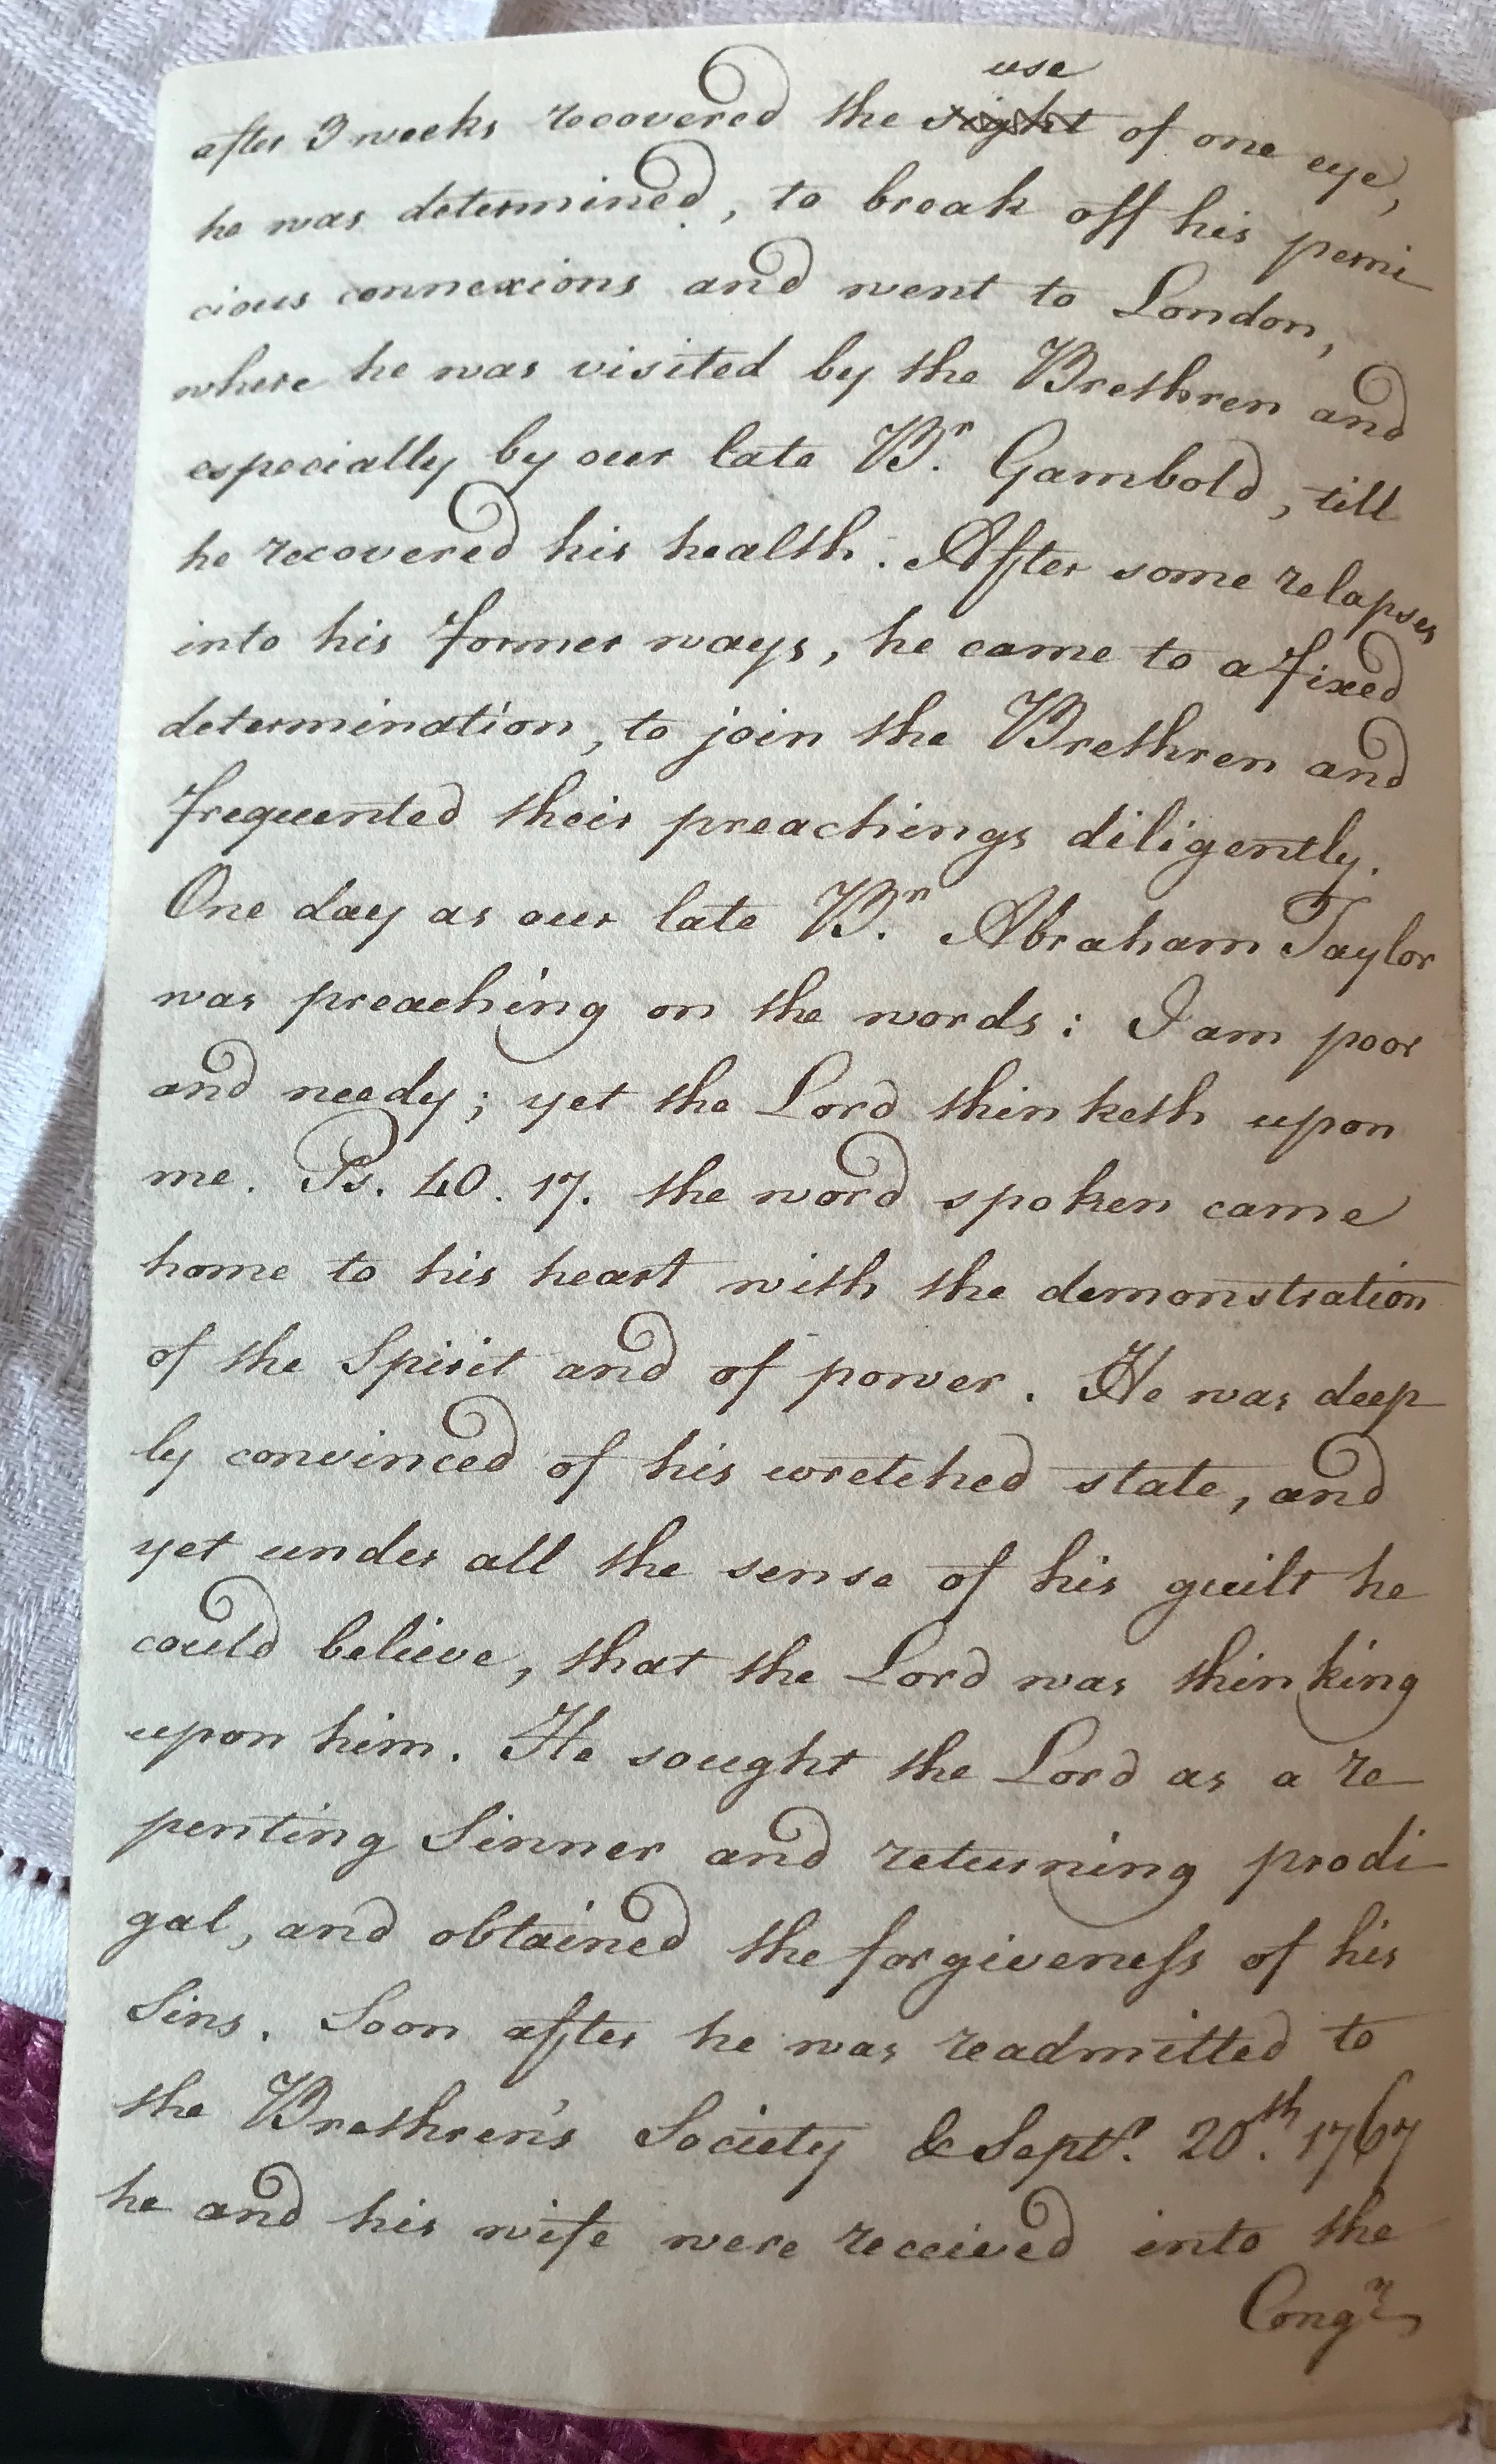 use
after 3 weeks recovered the sight of one eye,
he was determined, to break off his perni
cious connexions and went to London,
where he was visited by the Brethren and
especially by our late Br. Gambold, till
he recovered his health. After some relapses
into his former ways, he came to a fixed
determination, to join the Brethren and
frequented their preachings diligently.
One day as our late Br. Abraham Taylor
was preaching on the words: I am poor
and needy; yet the Lord thinketh upon
me. Ps. 40. 17. the word spoken came
home to his heart with the demonstration
of the Spirit and of power. He was deep
ly convinced of his wretched state, and
yet under all the sense of his guilt he
could believe, that the Lord was thinking
upon him. He sought the Lord as a re
penting Sinner and returning prodi
gal, and obtained the forgiveneſs of his
Sins. Soon after he was readmitted to
the Brethren's Society & Septr. 20th. 1767
he and his wife were received into the
Congn